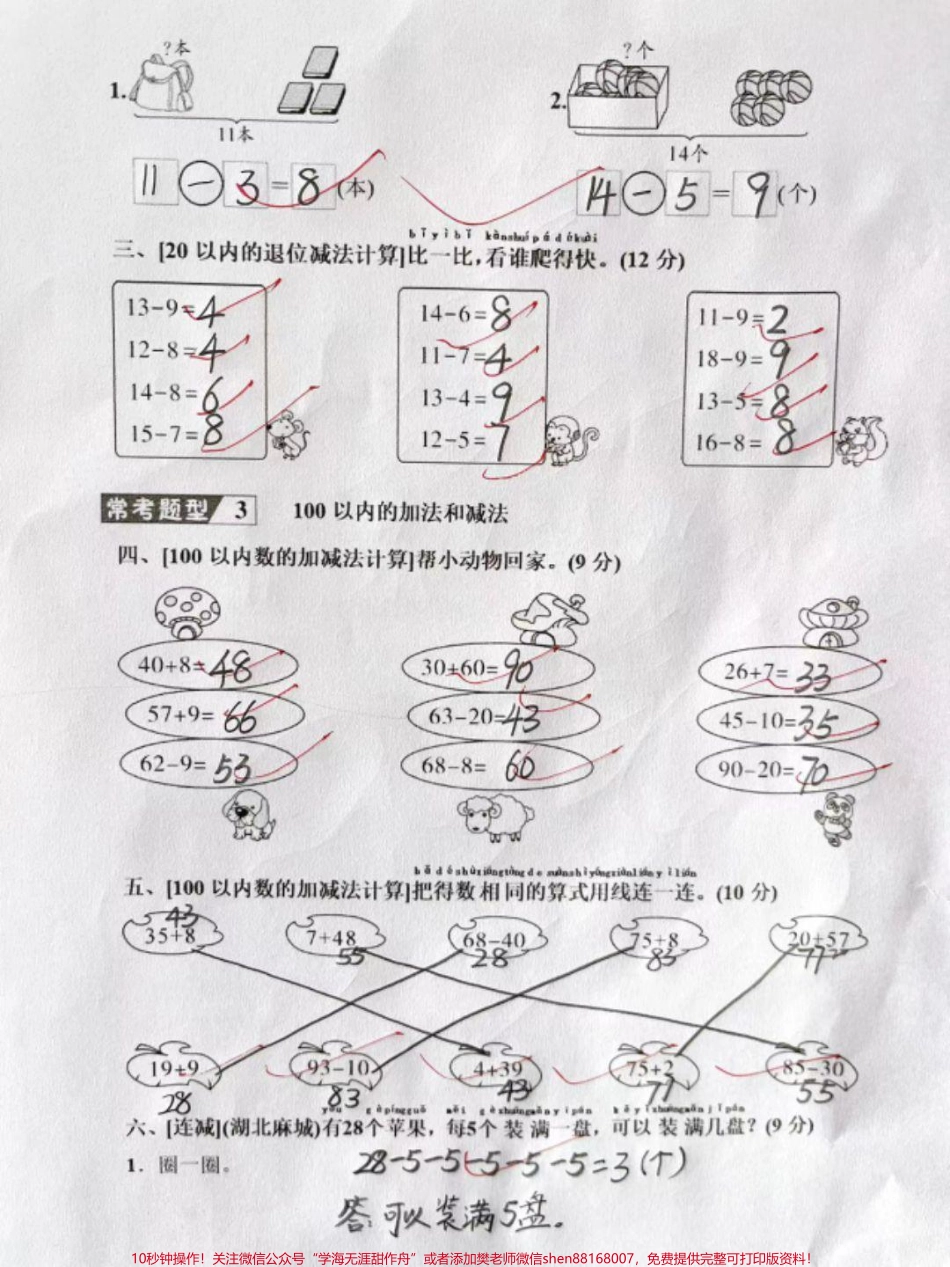 ?本
?个
1.
2.
11本
14个
11-3=8(本)
14-5=9(个)
bǐ yì bǐ kàn shuí pá dé kuài
三、[20以内的退位减法计算]比一比,看谁爬得快。(12分)
13-9=4
12-8=4
14-8=6
15-7=8
14-6=8
11-7=4
13-4=9
12-5=7
11-9=2
18-9=9
13-5=8
16-8=8
常考题型 3 100以内的加法和减法
四、[100以内数的加减法计算]帮小动物回家。(9分)
40+8=48
57+9=66
62-9=53
30+60=90
63-20=43
68-8=60
26+7=33
45-10=35
90-20=70
五、[100以内数的加减法计算]把得数相同的算式用线连一连。(10分)
43
35+8 7+48 68-40 75+8 20+57
55 28 83 77
19+9 93-10 4+39 75+2 85-30
28 83 43 77 55
六、[连减](湖北麻城)有28个苹果,每5个装满一盘,可以装满几盘?(9分)
1. 圈一圈。 28-5-5-5-5-5=3(个)
答:可以装满5盘。
10秒钟操作!关注微信公众号“学海无涯甜作舟”或者添加樊老师微信shen88168007,免费提供完整可打印版资料!